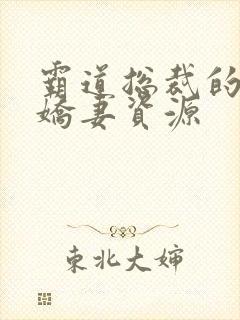 霸道总裁的
嬌妻資源
東北大婶